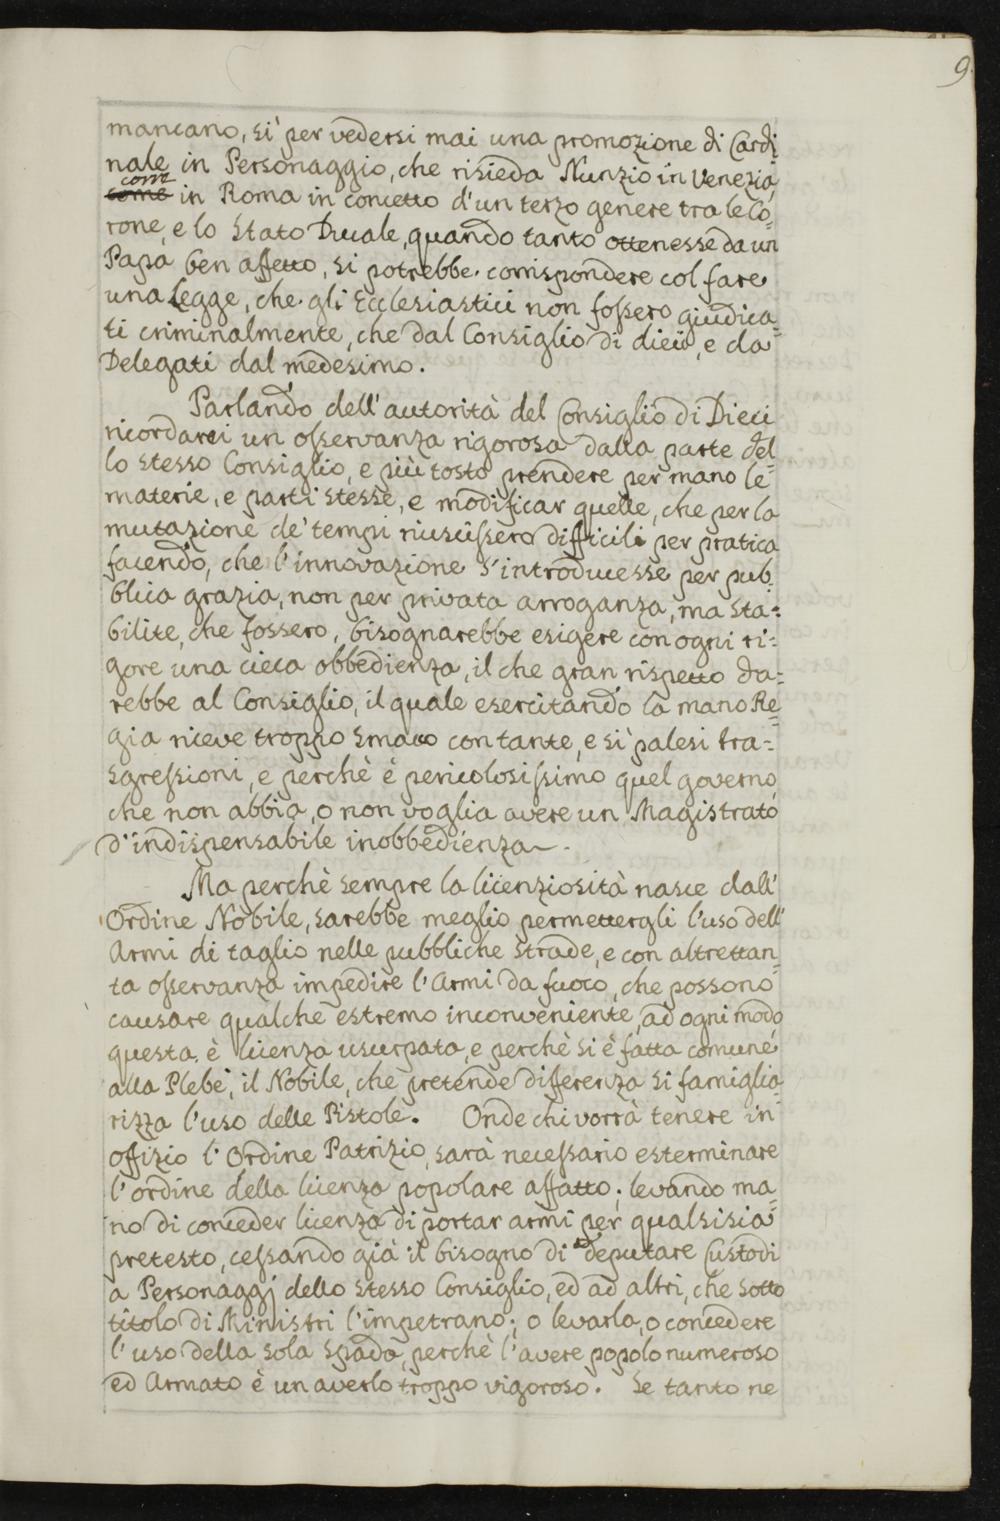 9.
mancano, si per vedersi mai una promozione di Cardi
nale in Personaggio, che risieda Nunzio in Venezia,
come
come in Roma in concetto d'un terzo genere tra le Co=
rone, e lo Stato Ducale, quando tanto ottenesse da un
Papa ben affetto, si potrebbe corrispondere col fare
una Legge, che gli Ecclesiastici non fossero giudica=
ti criminalmente, che dal Consiglio di dieci, e da
Delegati dal medesimo.
Parlando dell'autorità del Consiglio di Dieci
ricordarei un osservanza rigorosa dalla parte del=
lo stesso Consiglio, e più tosto prendere per mano le
materie, e parti stesse, e modificar quelle, che per la
mutazione de' tempi riuscissero difficili per pratica
facendo, che l'innovazione s'introducesse per pub
blica grazia, non per privata arroganza, ma sta=
bilite, che fossero, bisognarebbe esigere con ogni ri=
gore una cieca obbedienza, il che gran rispetto da=
rebbe al Consiglio, il quale esercitando la mano Re=
gia riceve troppo smaco con tante, e si palesi tra=
sgressioni, e perchè è pericolosissimo quel governo,
che non abbia, o non voglia avere un Magistrato
d'indispensabile inobbedienza.
Ma perchè sempre la licenziosità nasce dall'
Ordine Nobile, sarebbe meglio permettergli l'uso dell'
Armi di taglio nelle pubbliche strade, e con altrettan=
ta osservanza impedire l'Armi da fuoco, che possono
causare qualche estremo inconveniente, ad ogni modo
questa è licenza usurpata, e perchè si è fatta comune
alla Plebe, il Nobile, che pretende differenza si famiglia
rizza l'uso delle Pistole. Onde chi vorrà tenere in
offizio l'Ordine Patrizio, sarà necessario esterminare
l'ordine della licenza popolare affatto; levando ma=
no di conceder licenza di portar armi per qualsisia
pretesto, cessando già il bisogno di deputare Custodi
a Personaggj dello stesso Consiglio, ed ad altri, che sotto
titolo di Ministri l'impetrano; o levarla, o concedere
l'uso della sola spada, perchè l'avere popolo numeroso
ed Armato è un averlo troppo vigoroso. Se tanto ne